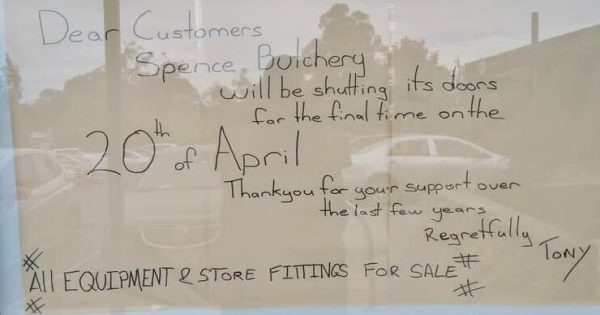 Dear Customers
Spence Butchery
will be shutting its doors
for the final time on the
20th of April
Thankyou for your support over
the last few years
Regretfully
Tony
# #
All EQUIPMENT & STORE FITTINGS FOR SALE
# #